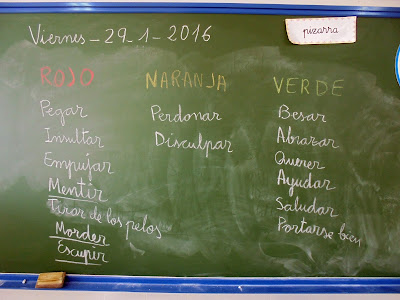 Viernes - 29 - 1 - 2016
pizarra
ROJO
Pegar
Insultar
Empujar
Mentir
Tirar de los pelos
Morder
Escupir
NARANJA
Perdonar
Disculpar
VERDE
Besar
Abrazar
Querer
Ayudar
Saludar
Portarse bien